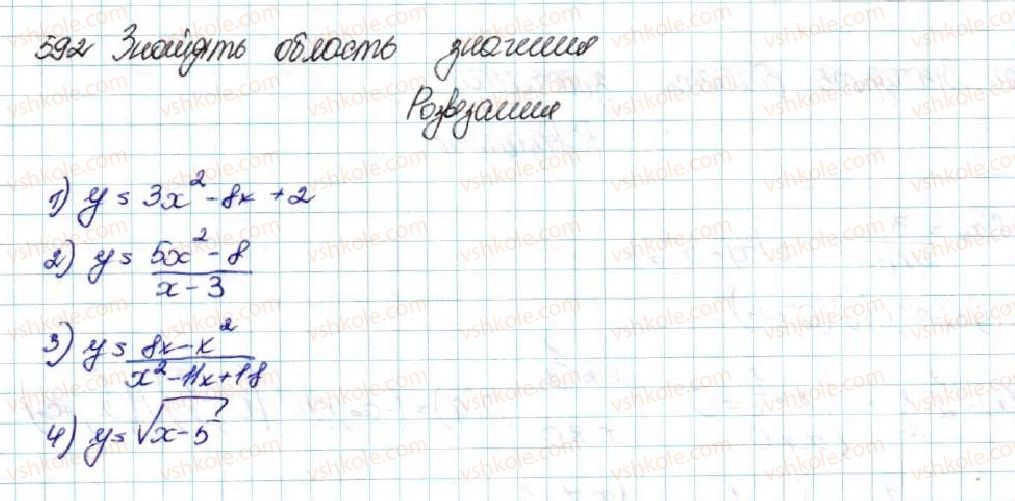 592 Знайдіть область значення
Розвезання
1) y = 3x² - 8x + 2
2) y = (5x² - 8)/(x - 3)
3) y = (8x - x²)/(x² - 11x + 18)
4) y = √(x - 5)
vshkole.com